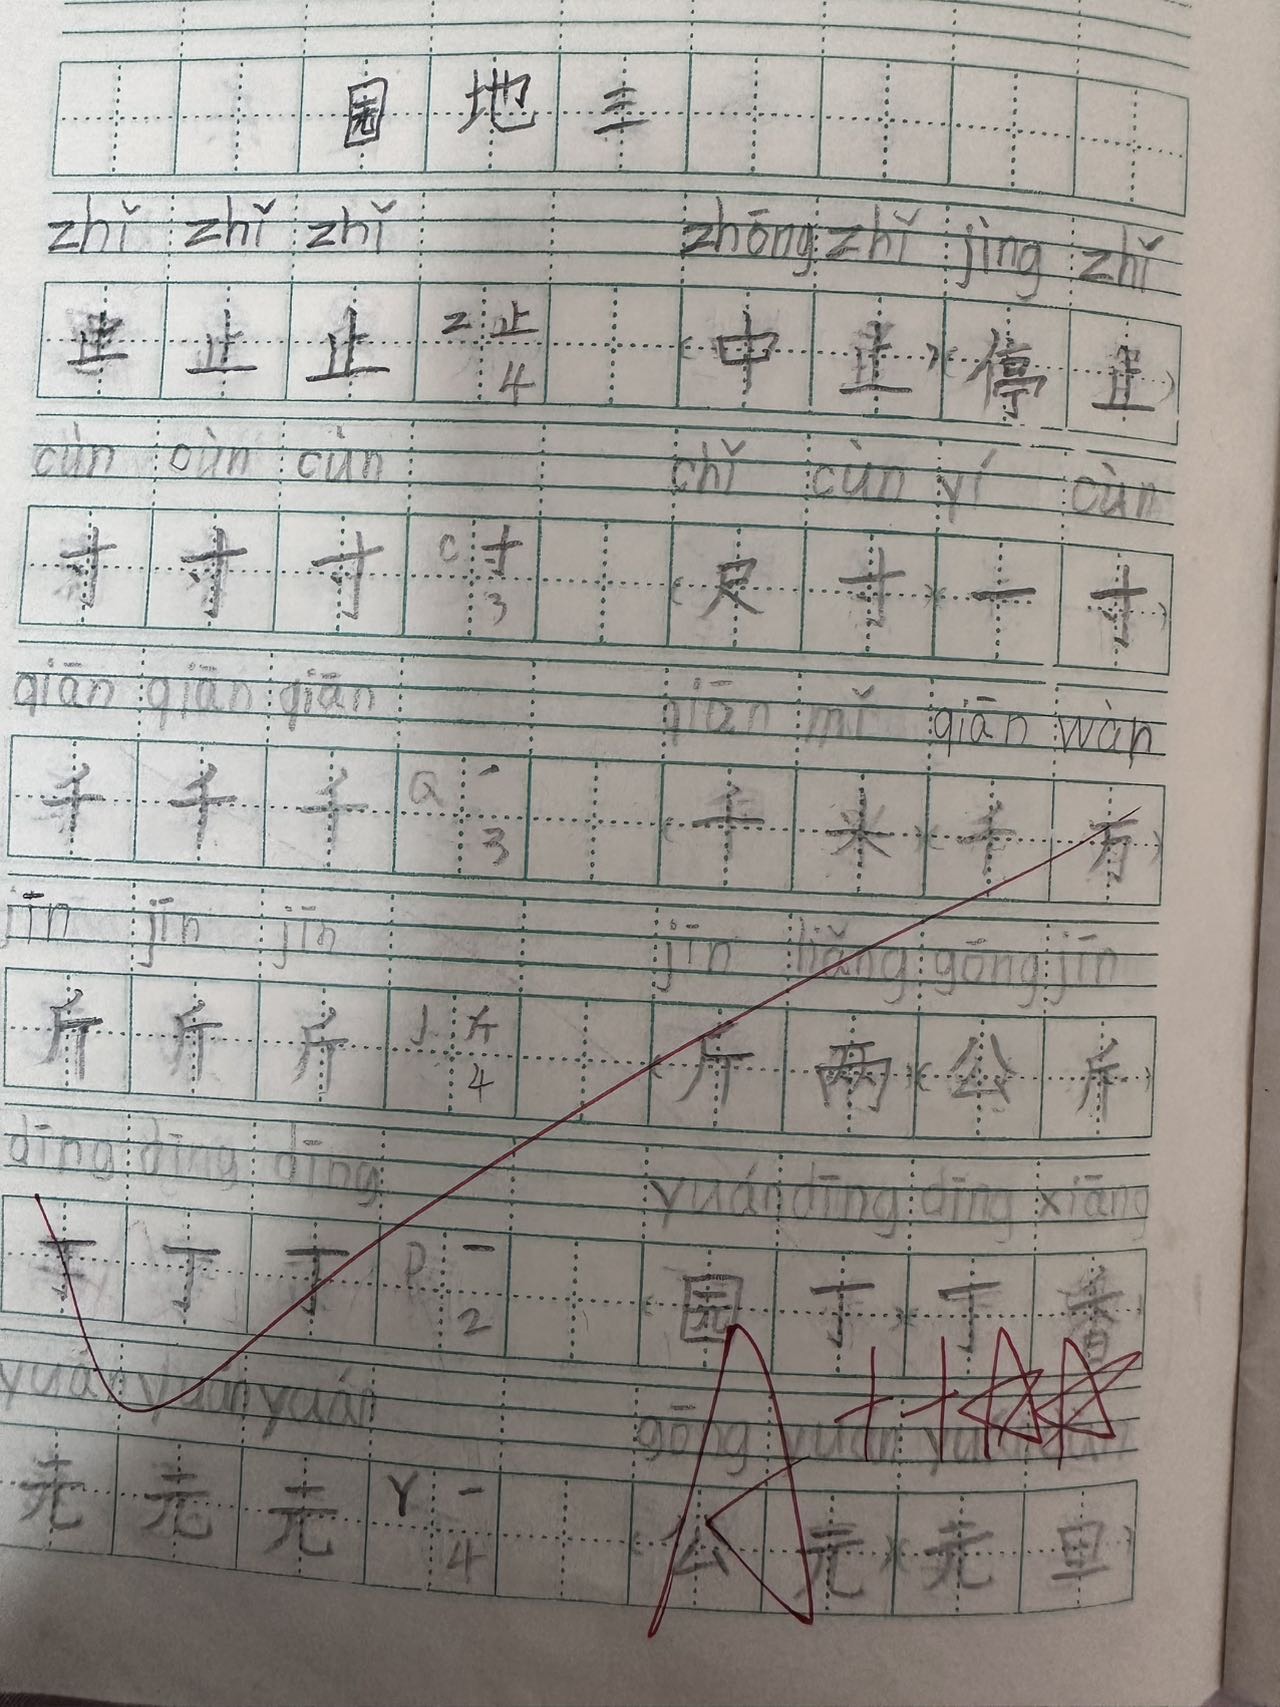 园地三
zhǐ zhǐ zhǐ zhōng zhǐ jìng zhǐ
止 止 止 Z 止 4 (中 止)(停 止)
cùn cùn cùn chǐ cùn yí cùn
寸 寸 寸 C 寸 3 (尺 寸)(一 寸)
qiān qiān qiān qiān mǐ qiān wàn
千 千 千 Q ㇒ 3 (千 米)(千 万)
jīn jīn jīn jīn liǎng gōng jīn
斤 斤 斤 J 斤 4 (斤 两)(公 斤)
dīng dīng dīng yuán dīng dīng xiāng
丁 丁 丁 D 一 2 (园 丁)(丁 香)
yuán yuán yuán gōng yuán yuán
元 元 元 Y 一 4 (公 元)(元 旦)
A++